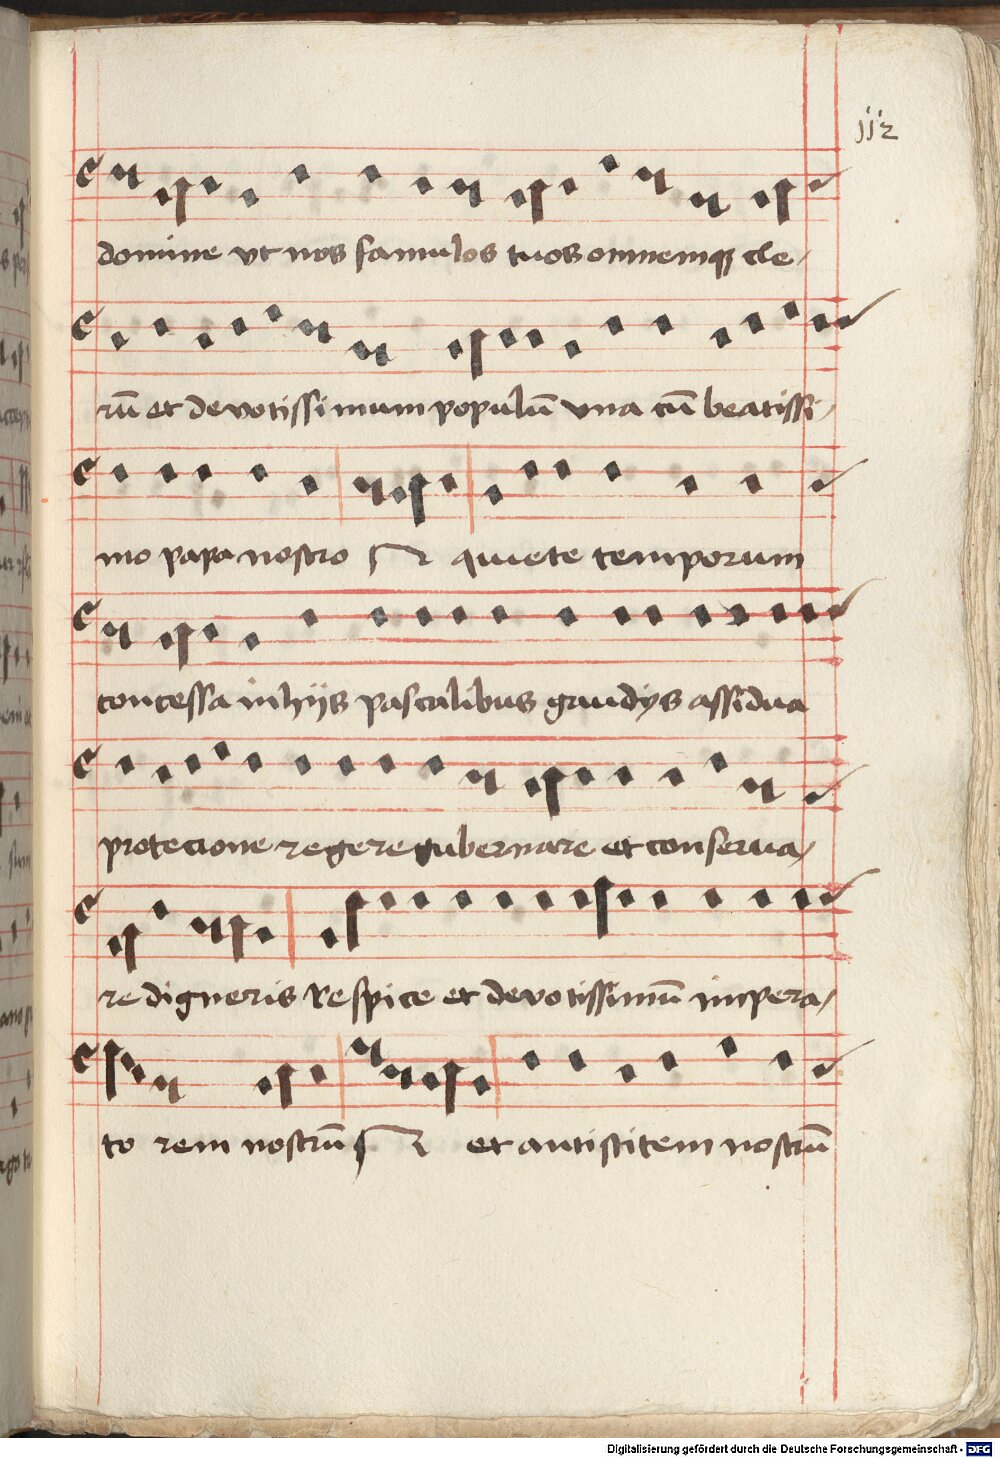 112
domine vt nos famulos tuos omnemqꝫ cle-
rū et devotissimum populū vna cū beatissi-
mo papa nostro N quiete temporum
concessa in hijs pascalibus gaudijs assidua
protectione regere gubernare et conserua-
re digneris Respice et devotissimū impera-
to rem nostrū N et antistitem nostrū
Digitalisierung gefördert durch die Deutsche Forschungsgemeinschaft - DFG